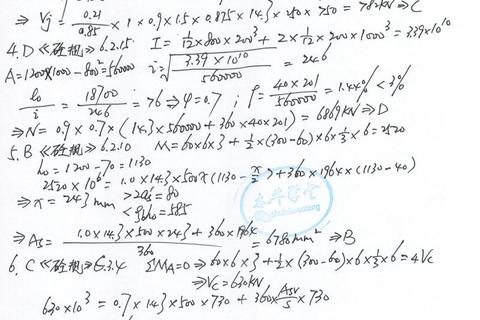 ⇒ Vj = 0.21/0.85 × 1 × 0.9 × 1.5 × 0.875 × 14.3 × 250 × 750 = 782kN ⇒ C
4. D 《砼规》6.2.15 I = 1/12 × 800 × 200³ + 2 × 1/12 × 200 × 1000³ = 3.39×10¹⁰
A = 1200×1000 - 800² = 560000 i = √(3.39×10¹⁰/560000) = 246
l₀/i = 18700/246 = 76 ⇒ φ = 0.7 ; ρ = 40×201/560000 = 1.44% < 3%
⇒ N = 0.9 × 0.7 × (14.3×560000 + 360×40×201) = 6869kN ⇒ D
5. B 《砼规》6.2.10 M = 60×6×3 + 1/2×(300-60)×6×1/3×6 = 2520
h₀ = 1200 - 70 = 1130
2520×10⁶ = 1.0×14.3×500x(1130 - x/2) + 360×1964×(1130-40)
⇒ x = 243mm >2as' = 80
<ξbh₀ = 585
⇒ As = (1.0×14.3×500×243 + 360×1964)/360 = 6780mm² ⇒ B
6. C 《砼规》6.3.4 ΣMA = 0 ⇒ 60×6×3 + 1/2×(300-60)×6×1/3×6 = 4Vc
⇒ Vc = 630kN
630×10³ = 0.7×1.43×500×730 + 360×Asv/s×730